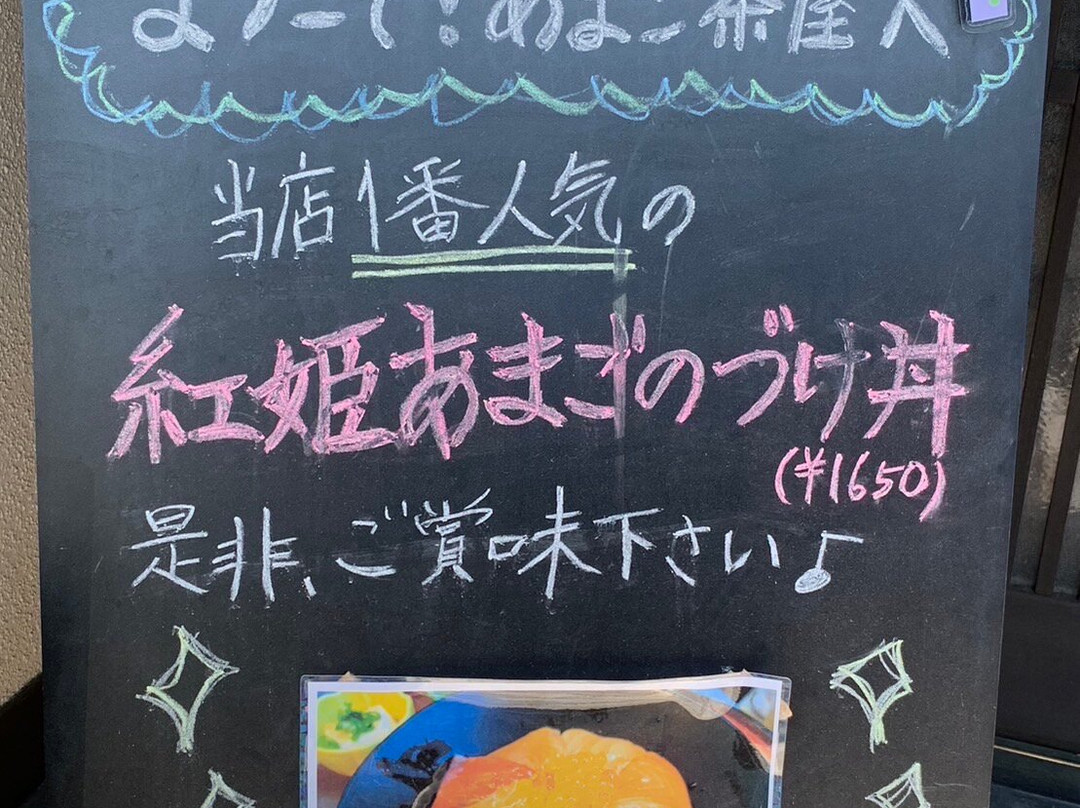 ようこそ!あまご茶屋へ
当店1番人気の
紅姫あまごのづけ丼
(¥1650)
是非、ご賞味下さい♪